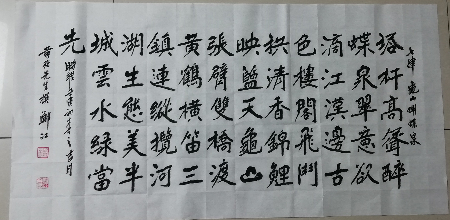 七律 龜山
塔杆高聳醉
蝶泉翠意欲
滴江漢邊古
色樓閣飛鬥
拱清香錦鯉
映藍天龜山
張臂雙橋渡
黃鶴橫笛三
鎮連縱攬河
湖生態美半
城雲水綠當
先
之吉月
先生撰 鄭江